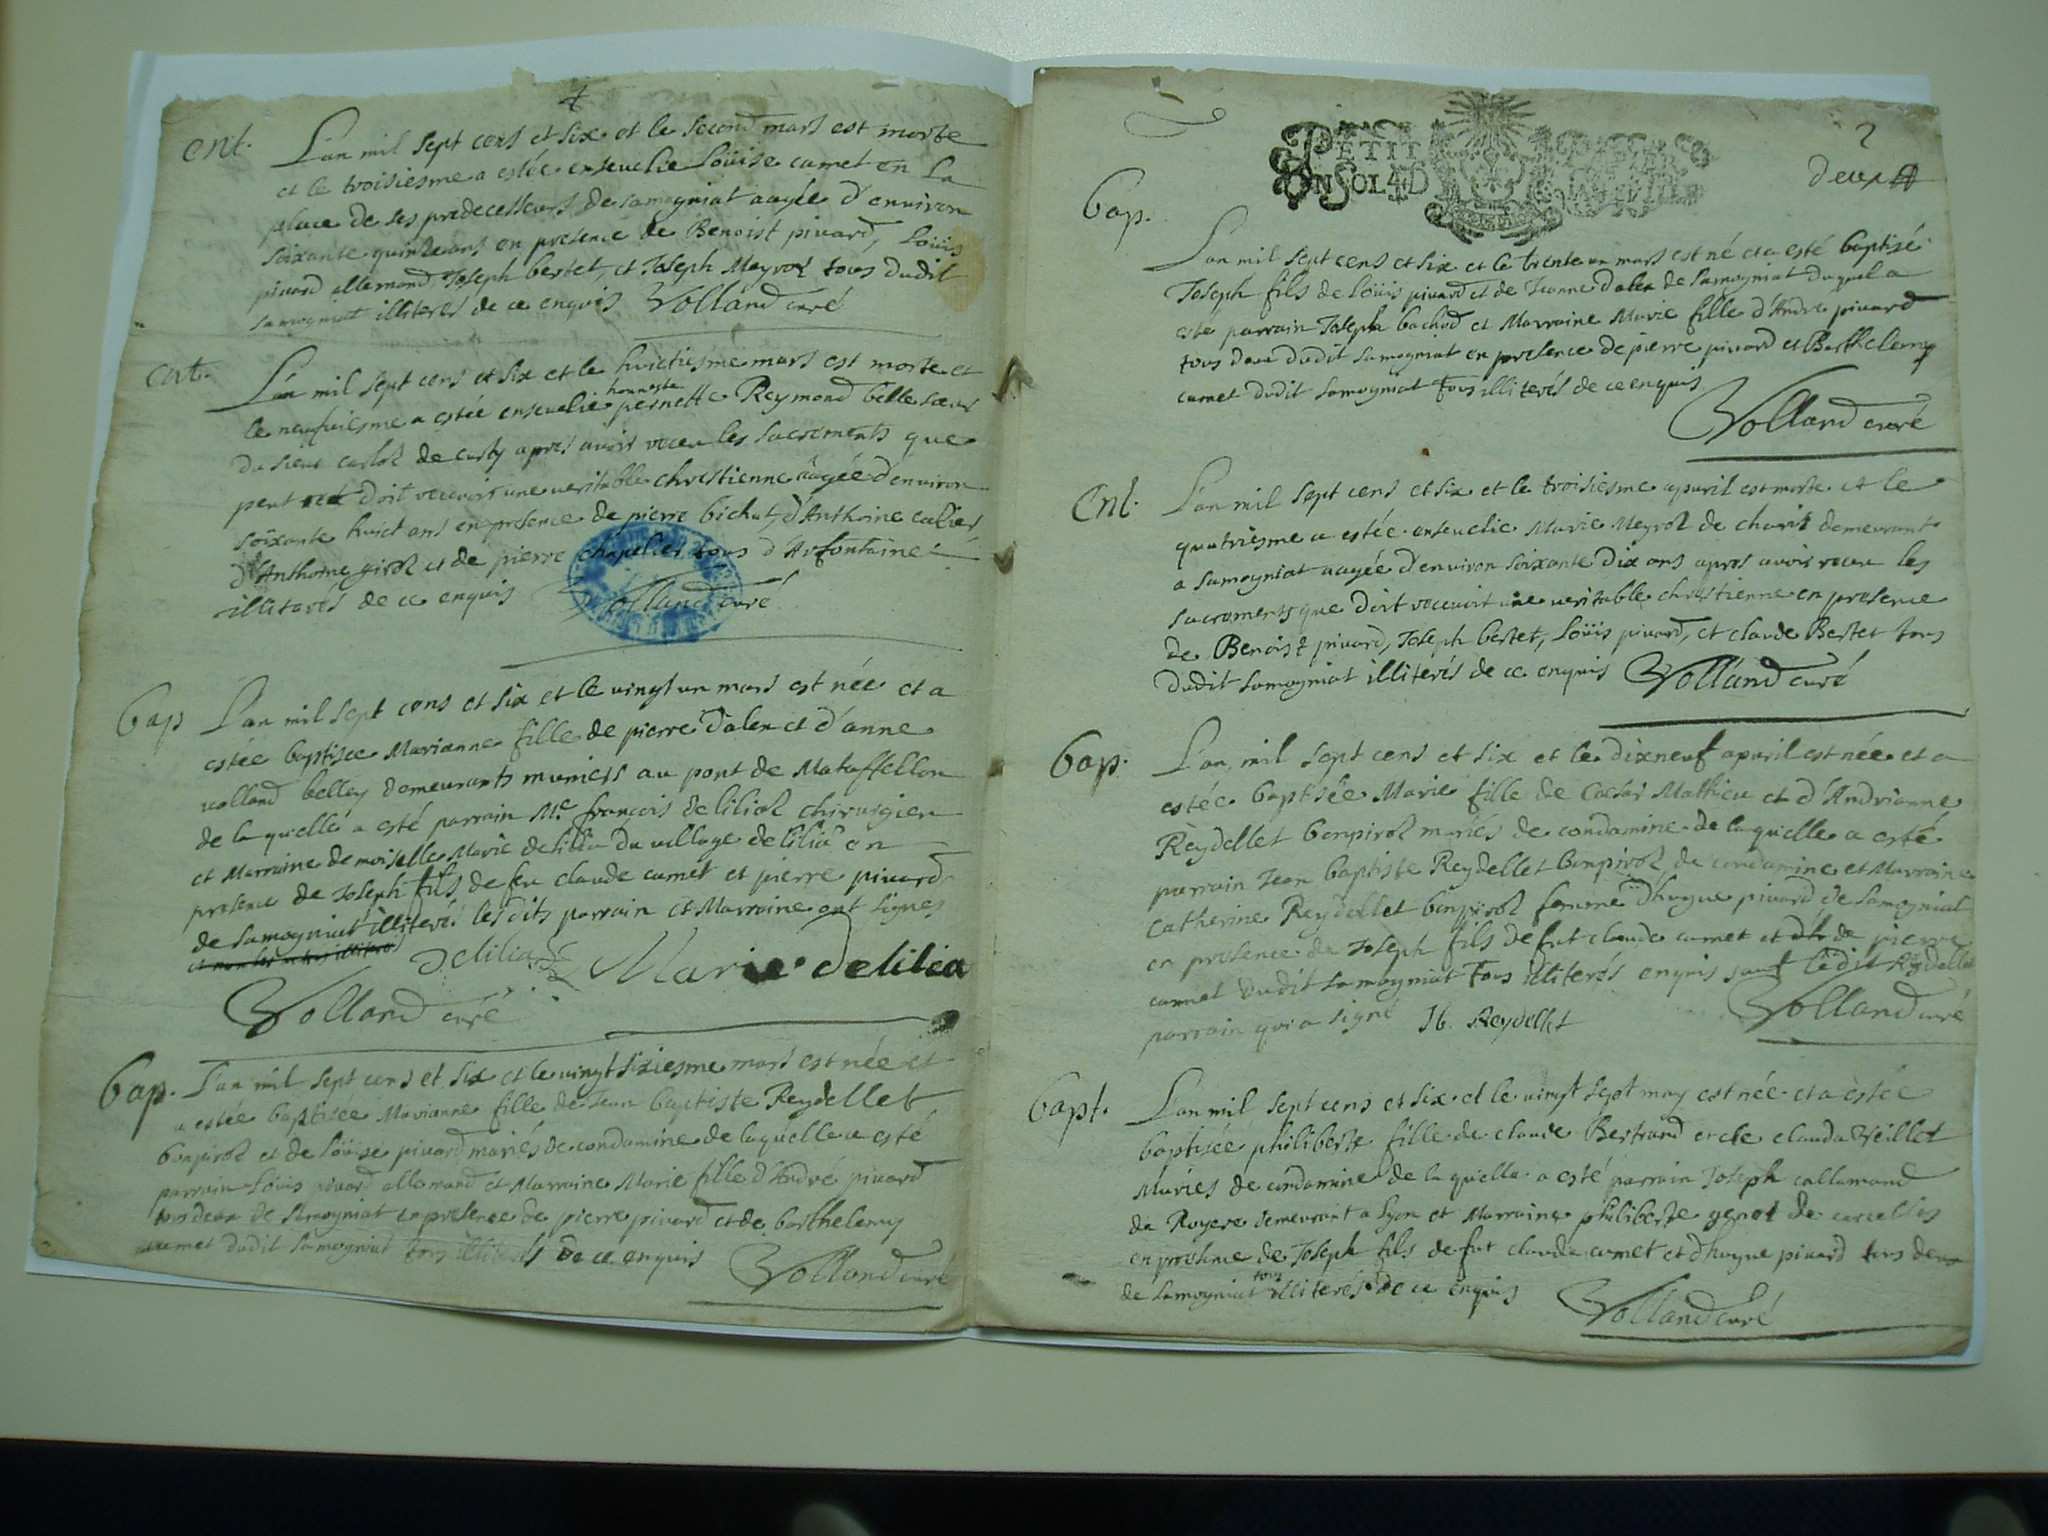 ent.
L'an mil sept cens et six et le second mars est morte
et le troisiesme a estée enseuelie Loüise cumet en la
place de ses predecesseurs de samogniat aagée d'environ
soixante quinze ans en presence de Benoist pivard, Loüis
pivard allemand, Joseph bertet, et Joseph Meyroz tous dudit
samogniat illiterés de ce enquis Volland curé
ent.
L'an mil sept cens et six et le huictiesme mars est morte et
le neufuiesme a estée enseuelie honneste pernette Reymond belle sœur
du sieur carloz de cusy apres avoir receu les sacrements que
peut et doit recevoir une veritable chrestienne aagée d'environ
soixante huict ans en presence de pierre bichat, d'Anthoine
d'Anthoine giroz et de pierre chapelier tous d'Arfontaine
illiterés de ce enquis Volland curé
bap
L'an mil sept cens et six et le vingt un mars est née et a
estée baptisée Marianne fille de pierre dalex et d'anne
volland belley demeurants muniers au pont de Mataffellon
de la quelle a esté parrain Me. françois de liliaz chirurgien
et Marraine demoiselle Marie delilia du village de lilia en
presence de Joseph fils de feu claude cumet et pierre pivard
de samogniat illiterés lesdits parrain et Marraine ont signés
Delilia Marie delilia
Volland curé
bap.
L'an mil sept cens et six et le vingt sixiesme mars est née et
a estée baptisée Marianne fille de Jean baptiste Reydellet
bonpiroz et de Loüise pivard mariés de condamine de laquelle a esté
parrain Loüis pivard allemand et Marraine Marie fille d'André pivard
tous deux de samogniat en presence de pierre pivard et de barthelemy
cumet dudit samogniat tous illiterés de ce enquis
Volland curé
2
PETIT PAPIER
UN SOL 4 D
deux
bap.
L'an mil sept cens et six et le trente un mars est né et a esté baptisé
Joseph fils de Loüis pivard et de Jeanne dalex de samogniat duquel a
esté parrain Joseph bachod et Marraine Marie fille d'André pivard
tous deux dudit samogniat en presence de pierre pivard et Barthelemy
cumet dudit samogniat tous illiterés de ce enquis
Volland curé
Ent.
L'an mil sept cens et six et le troisiesme apuril est morte et le
quatriesme a estée enseuelie Marie Meyroz de charix demeurant
a samogniat aagée d'environ soixante dix ans apres avoir receu les
sacrements que doit recevoir une veritable chrestienne en presence
de Benoist pivard, Joseph bertet, Loüis pivard, et claude Bertet tous
dudit samogniat illiterés de ce enquis Volland curé
bap.
L'an mil sept cens et six et le dixneuf apuril est née et a
estée baptisée Marie fille de Cæsar Mathieu et d'Andrianne
Reydellet bonpiroz mariés de condamine de laquelle a esté
parrain Jean baptiste Reydellet bonpiroz de condamine et Marraine
Catherine Reydellet bonpiroz femme d'hugue pivard de samogniat
en presence de Joseph fils de fut claude cumet et de pierre
cumet dudit samogniat tous illiterés enquis sauf ledit Reydellet
parrain qui a signé Jb. Reydellet Volland curé
bapt.
L'an mil sept cens et six et le vingt sept may est née et a estée
baptisée philiberte fille de claude Bertrand et de clauda Veillet
Mariés de condamine de la quelle a esté parrain Joseph callamand
de Royere demeurant a Lyon et Marraine philiberte genot de
en presence de Joseph fils de fut claude cumet et d'hugue pivard tous deux
de samogniat tous illiterés de ce enquis
Volland curé